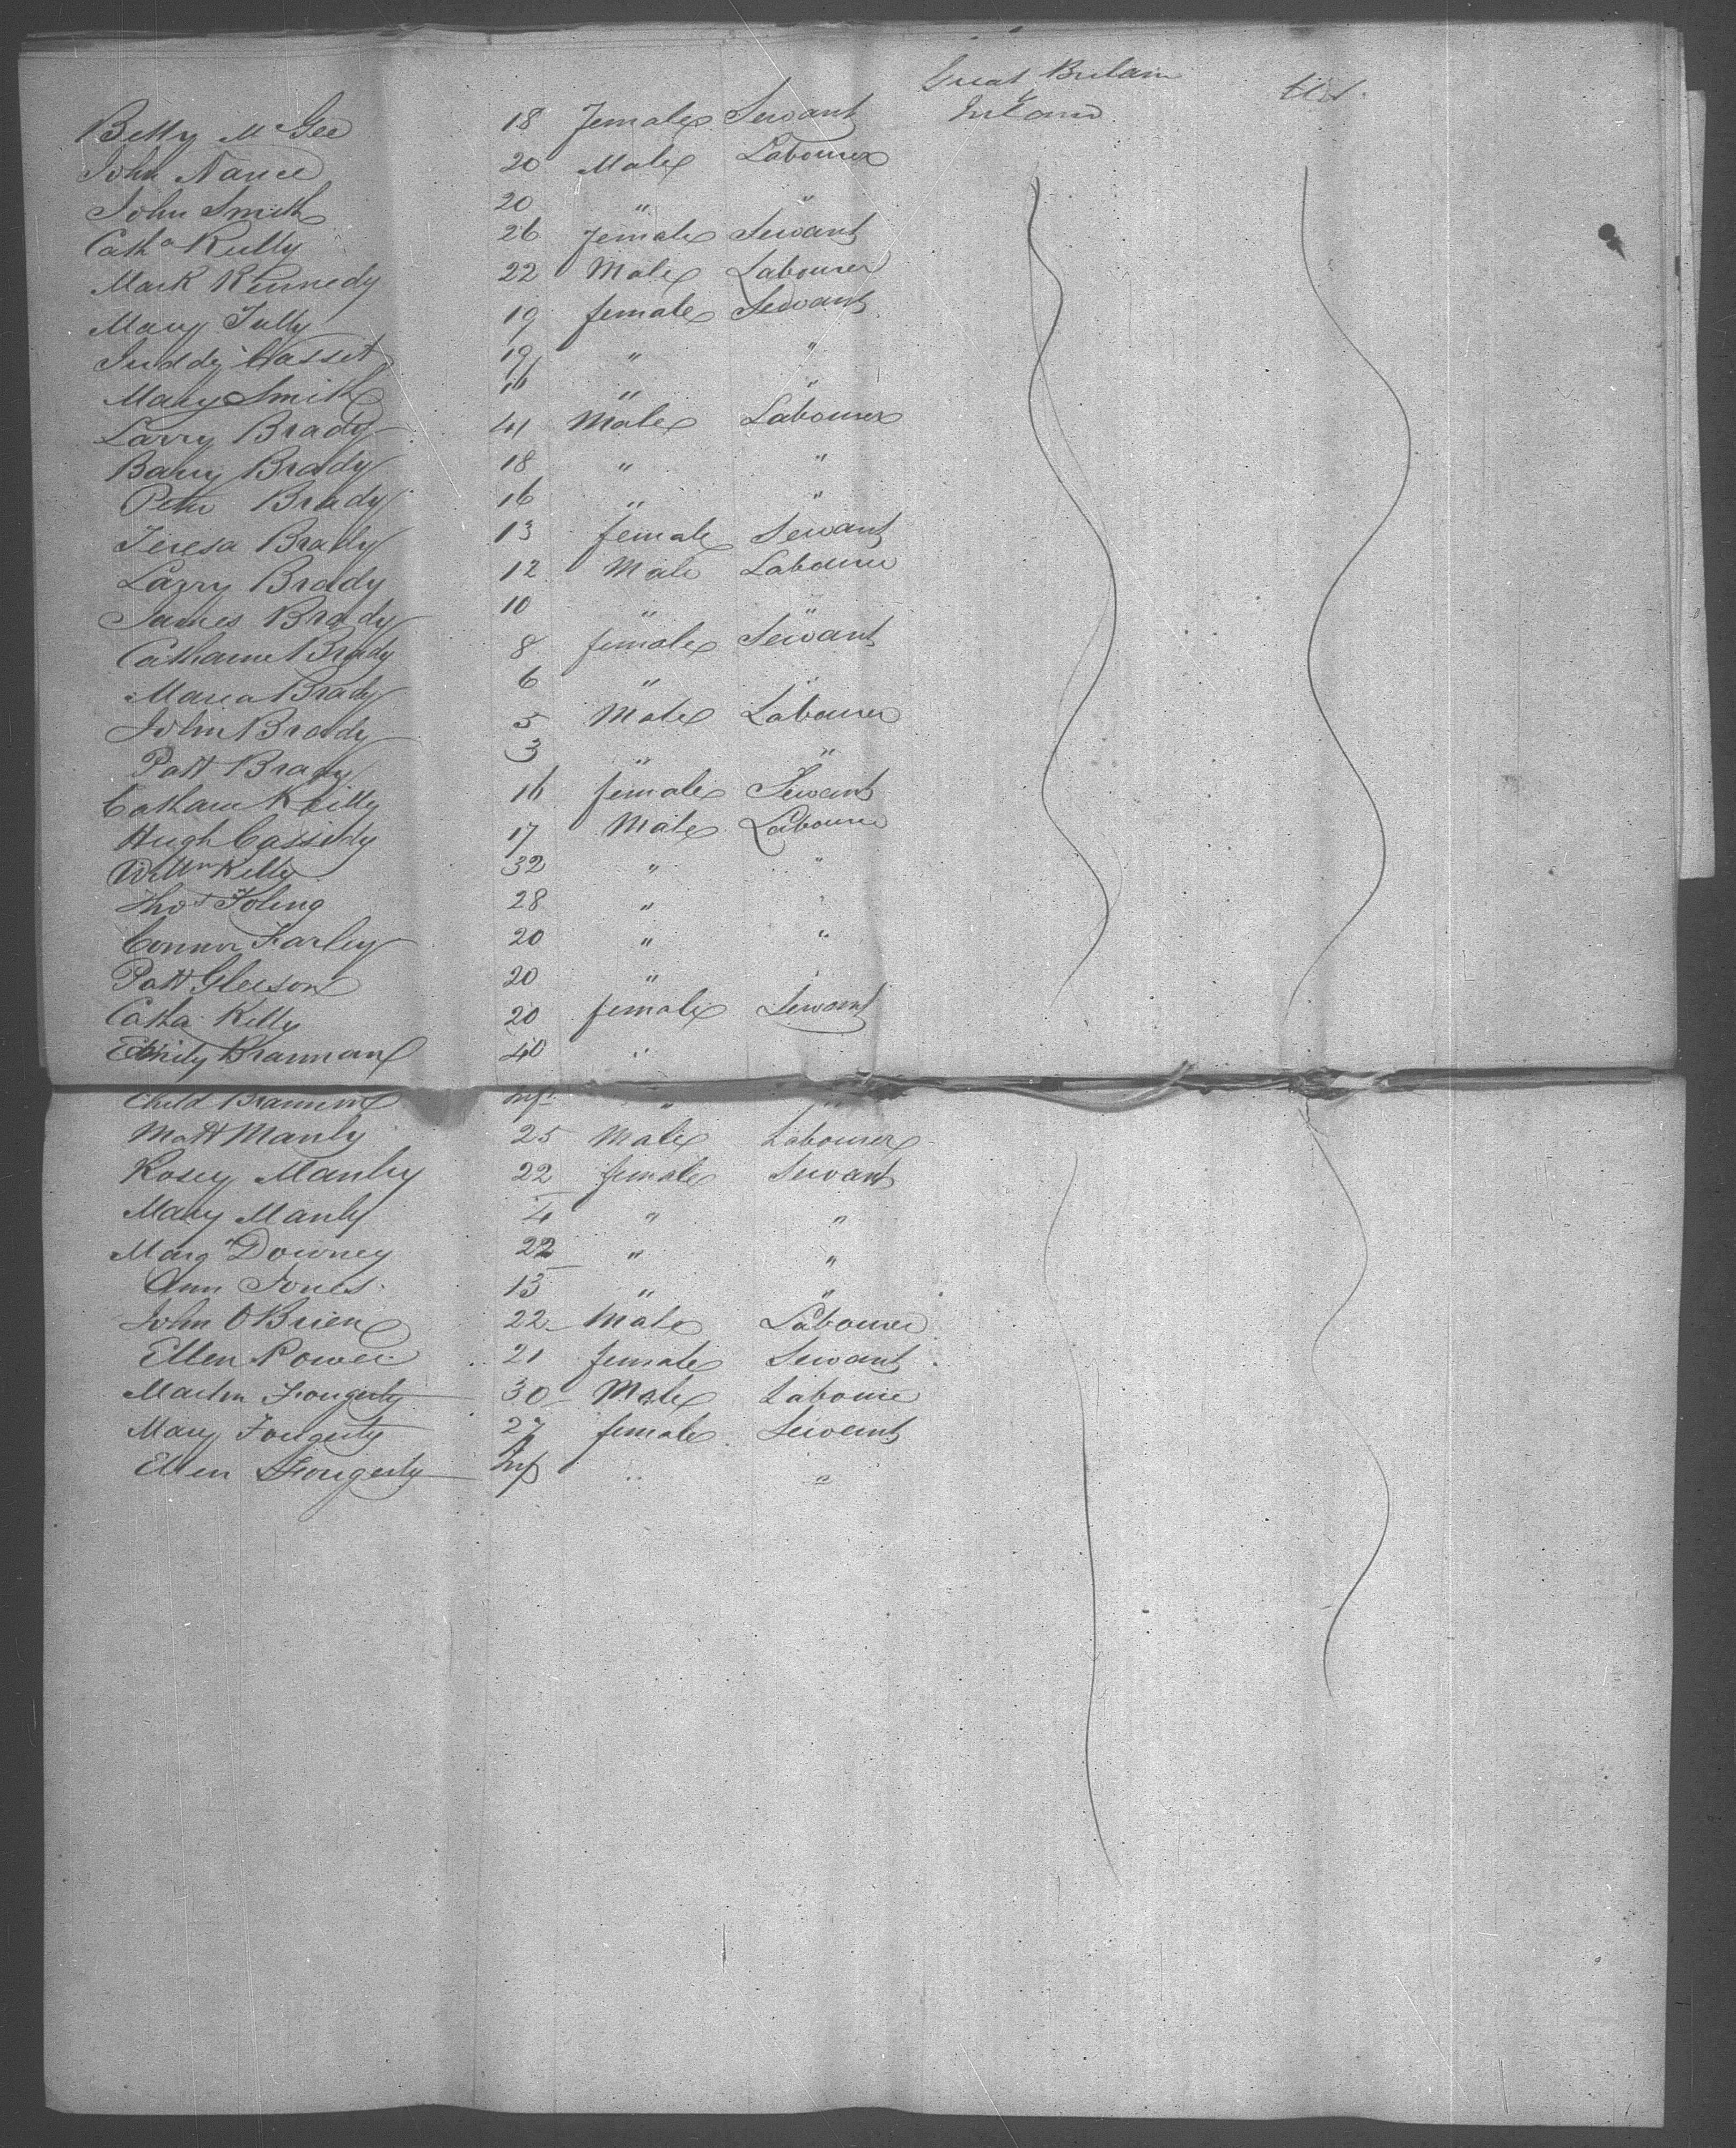 Great Britain &
Betty McGee 18 female Servant Ireland U.S.
John Nance 20 Male Labourer
John Smith 20 " "
Catha Reilly 26 female Servant
Mark Kennedy 22 Male Labourer
Mary Tully 19 female Servant
Juddy Casset 19 " "
Mary Smith 16 " "
Larry Brady 41 Male Labourer
Barry Brady 18 " "
Peter Brady 16 " "
Teresa Brady 13 female Servant
Larry Brady 12 Male Labourer
James Brady 10 " "
Catharine Brady 8 female Servant
Maria Brady 6 " "
John Brady 5 Male Labourer
Patt Brady 3 " "
Catharin Reilly 16 female Servant
Hugh Cassiddy 17 Male Labourer
Willm Kelly 32 " "
Thos 28 " "
Connor Farley 20 " "
Patt Gleeson 20 " "
Catha Kelly 20 female Servant
Brannan 40 "
Child Brannan Inf " "
Matt Manly 25 Male Labourer
Rosey Manly 22 female Servant
Mary Manly 4 " "
Marg Downey 22 " "
Ann Jones 15 " "
John O'Brien 22 Male Labourer
Ellen Power 21 female Servant
Martin Fougerty 30 Male Labourer
Mary Fougerty 27 female Servant
Ellen Fougerty Inf " "